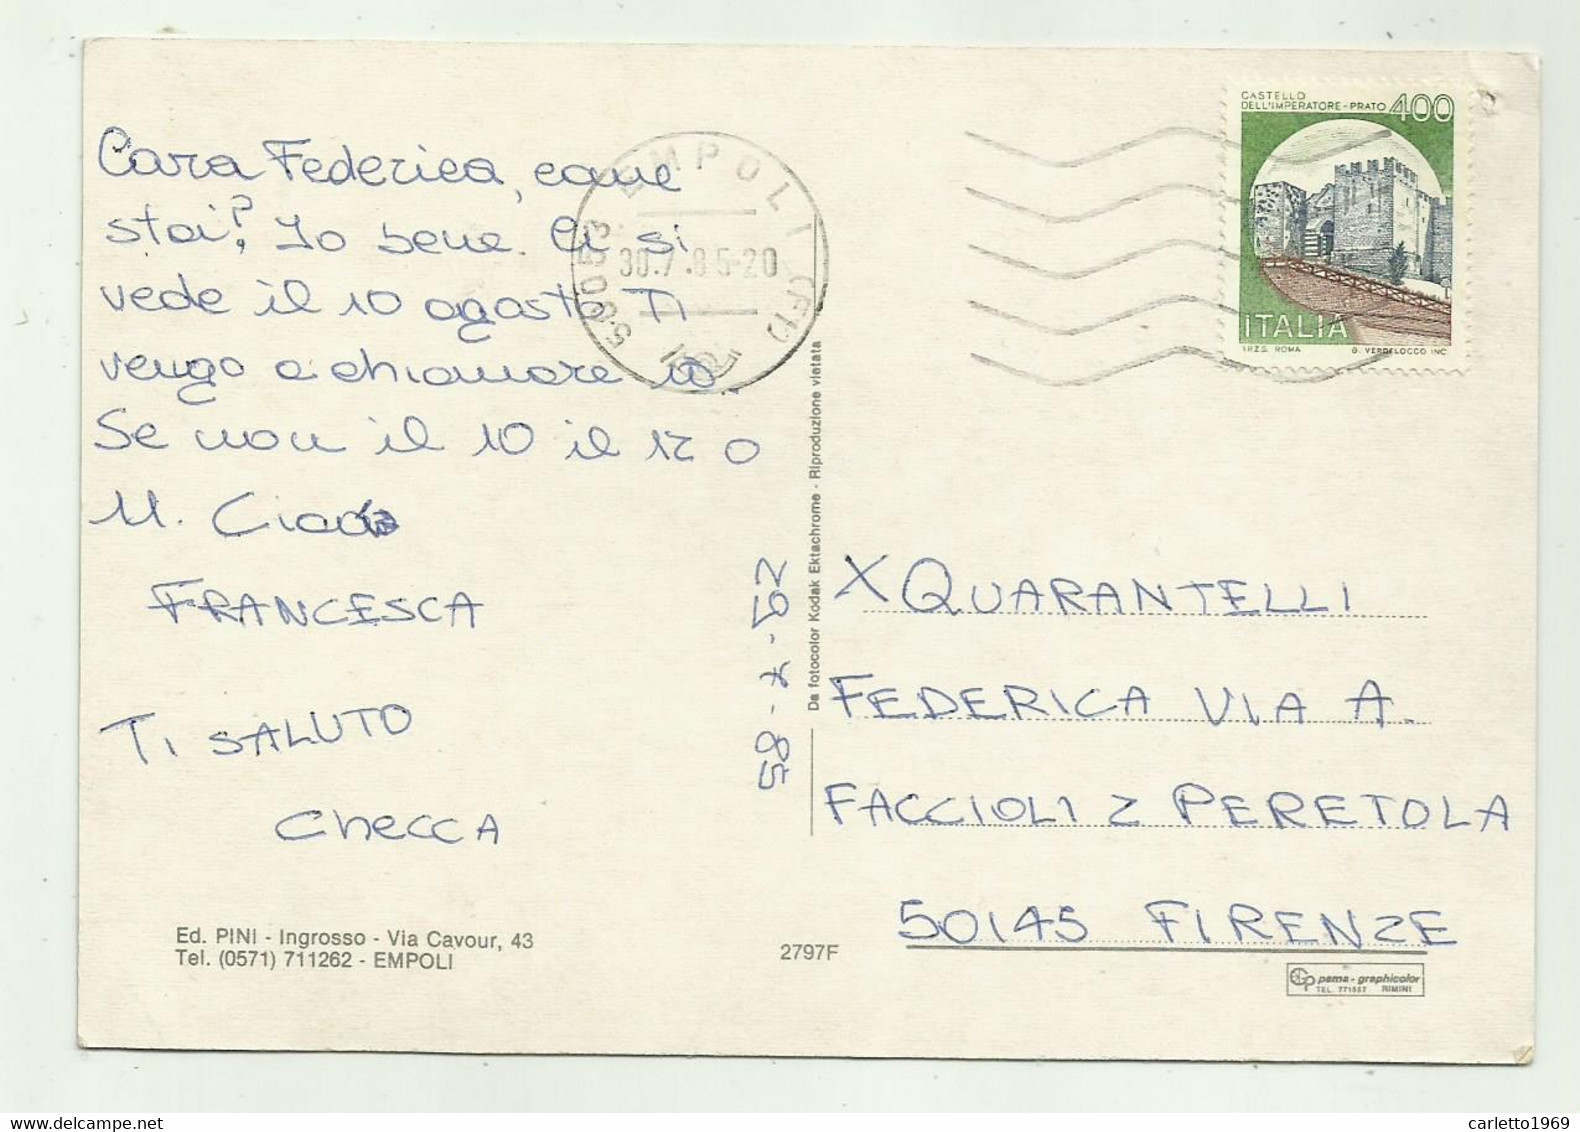 Cara Federica, come
stai? Io bene. Ci si
vede il 10 agosto Ti
vengo a chiamare io..
Se non il 10 il 12 o
11. Ciao
FRANCESCA
TI SALUTO
CHECCA
Ed. PINI - Ingrosso - Via Cavour, 43
Tel. (0571) 711262 - EMPOLI
2797F
50053 EMPOLI (FI)
30.7.85-20
Da fotocolor Kodak Ektachrome - Riproduzione vietata
29-7-85
CASTELLO
DELL'IMPERATORE-PRATO 400
ITALIA
I.P.Z.S. ROMA G. VERDELOCCO INC.
X QUARANTELLI
FEDERICA VIA A.
FACCIOLI 2 PERETOLA
50145 FIRENZE
pama-graphicolor
TEL. 771557 RIMINI
carletto1969